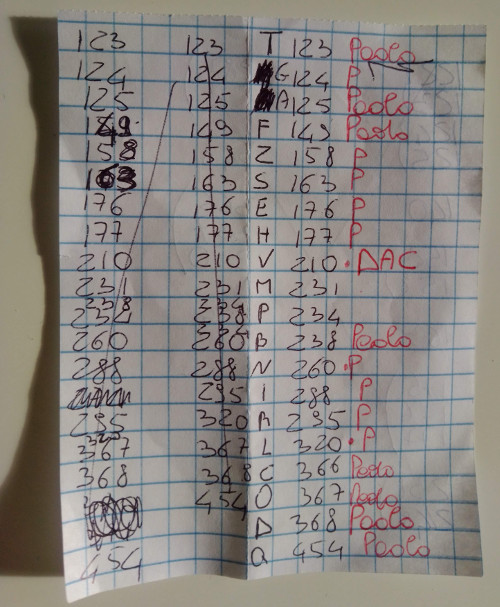 123 123 T 123 Paolo
124 124 G 124 P
125 125 A 125 Paolo
149 149 F 149 Paolo
158 158 Z 158 P
163 163 S 163 P
176 176 E 176 P
177 177 H 177 P
210 210 V 210 . DAC
231 231 M 231
234 P 234
238 238 B 238 Paolo
260 260 N 260 . P
288 288 I 288 P
295 295 R 295 P
320 L 320 . P
367 367 C 366 Paolo
368 368 O 367 Paolo
D 368 Paolo
454 454 Q 454 Paolo